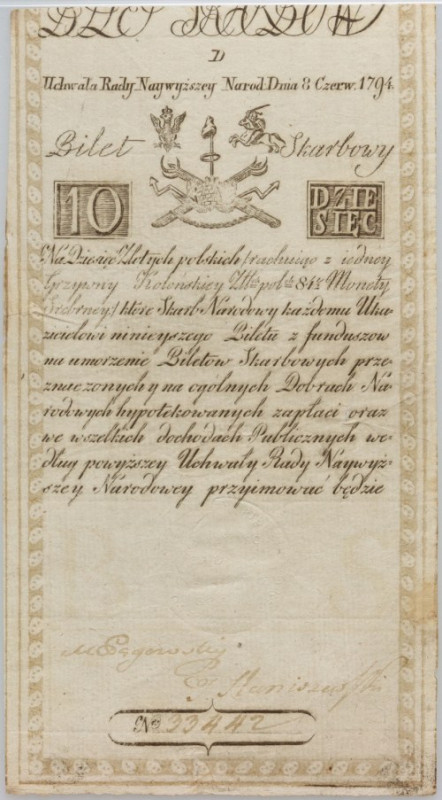 D
Uchwała Rady Naywyższey Narod. Dnia 8 Czerw. 1794.
Bilet Skarbowy
10 DZIE
SIĘC
Na Dziesięć Złotych polskich /rachuiąc z iedney
Grzywny Kolońskiey Złtch pol: 84½ Monety
Srebrney/ które Skarb Narodowy każdemu Uka-
zicielowi ninieyszego Biletu z funduszow
na umorzenie Biletow Skarbowych prze-
znaczonych y na ogolnych Dobrach Na-
rodowych hypotekowanych zapłaci oraz
we wszelkich dochodach Publicznych we-
dług powyższey Uchwały Rady Naywyż-
szey Narodowey przyimować będzie
No 33442